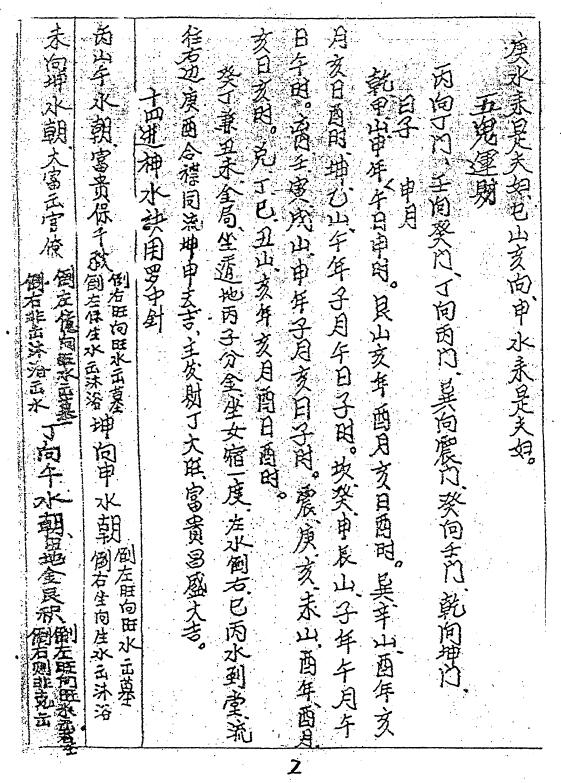 庚水来是夫妇。巳山亥向、申水来是夫妇。
五鬼运财
丙向丁门、壬向癸门、丁向丙门、巽向震门、癸向壬门、乾向坤门、
日子 申月
乾甲山申年午日申时。艮山亥年酉月亥日酉时。巽、辛山、酉年亥
月亥日酉时、坤、乙山、午年子月午日子时。坎、癸、申辰山、子年午月午
日午时。离、壬、寅、戌山、申年子月亥日子时。震、庚、亥、未山、酉年、酉月
亥日亥时。兑、丁、巳、丑山、亥年亥月酉日酉时。
癸丁兼丑未全局、坐 地丙子分金、坐女宿一度、左水倒右、巳丙水到堂流
往右边庚酉合襟同流坤申去吉、主发财丁大旺、富贵昌盛大吉。
十四进神水诀用罗中针
丙山午水朝、富贵保千 倒右旺向旺水出墓 倒左 生水出沐浴 坤向申水朝 倒左旺向旺水出墓 倒右生向生水出沐浴
未向坤水朝、大富出官僚 倒左 向旺水出墓 倒右非出沐浴出水 丁向午水朝、 地金民积 倒左旺向旺水出墓 倒右则非克出
2